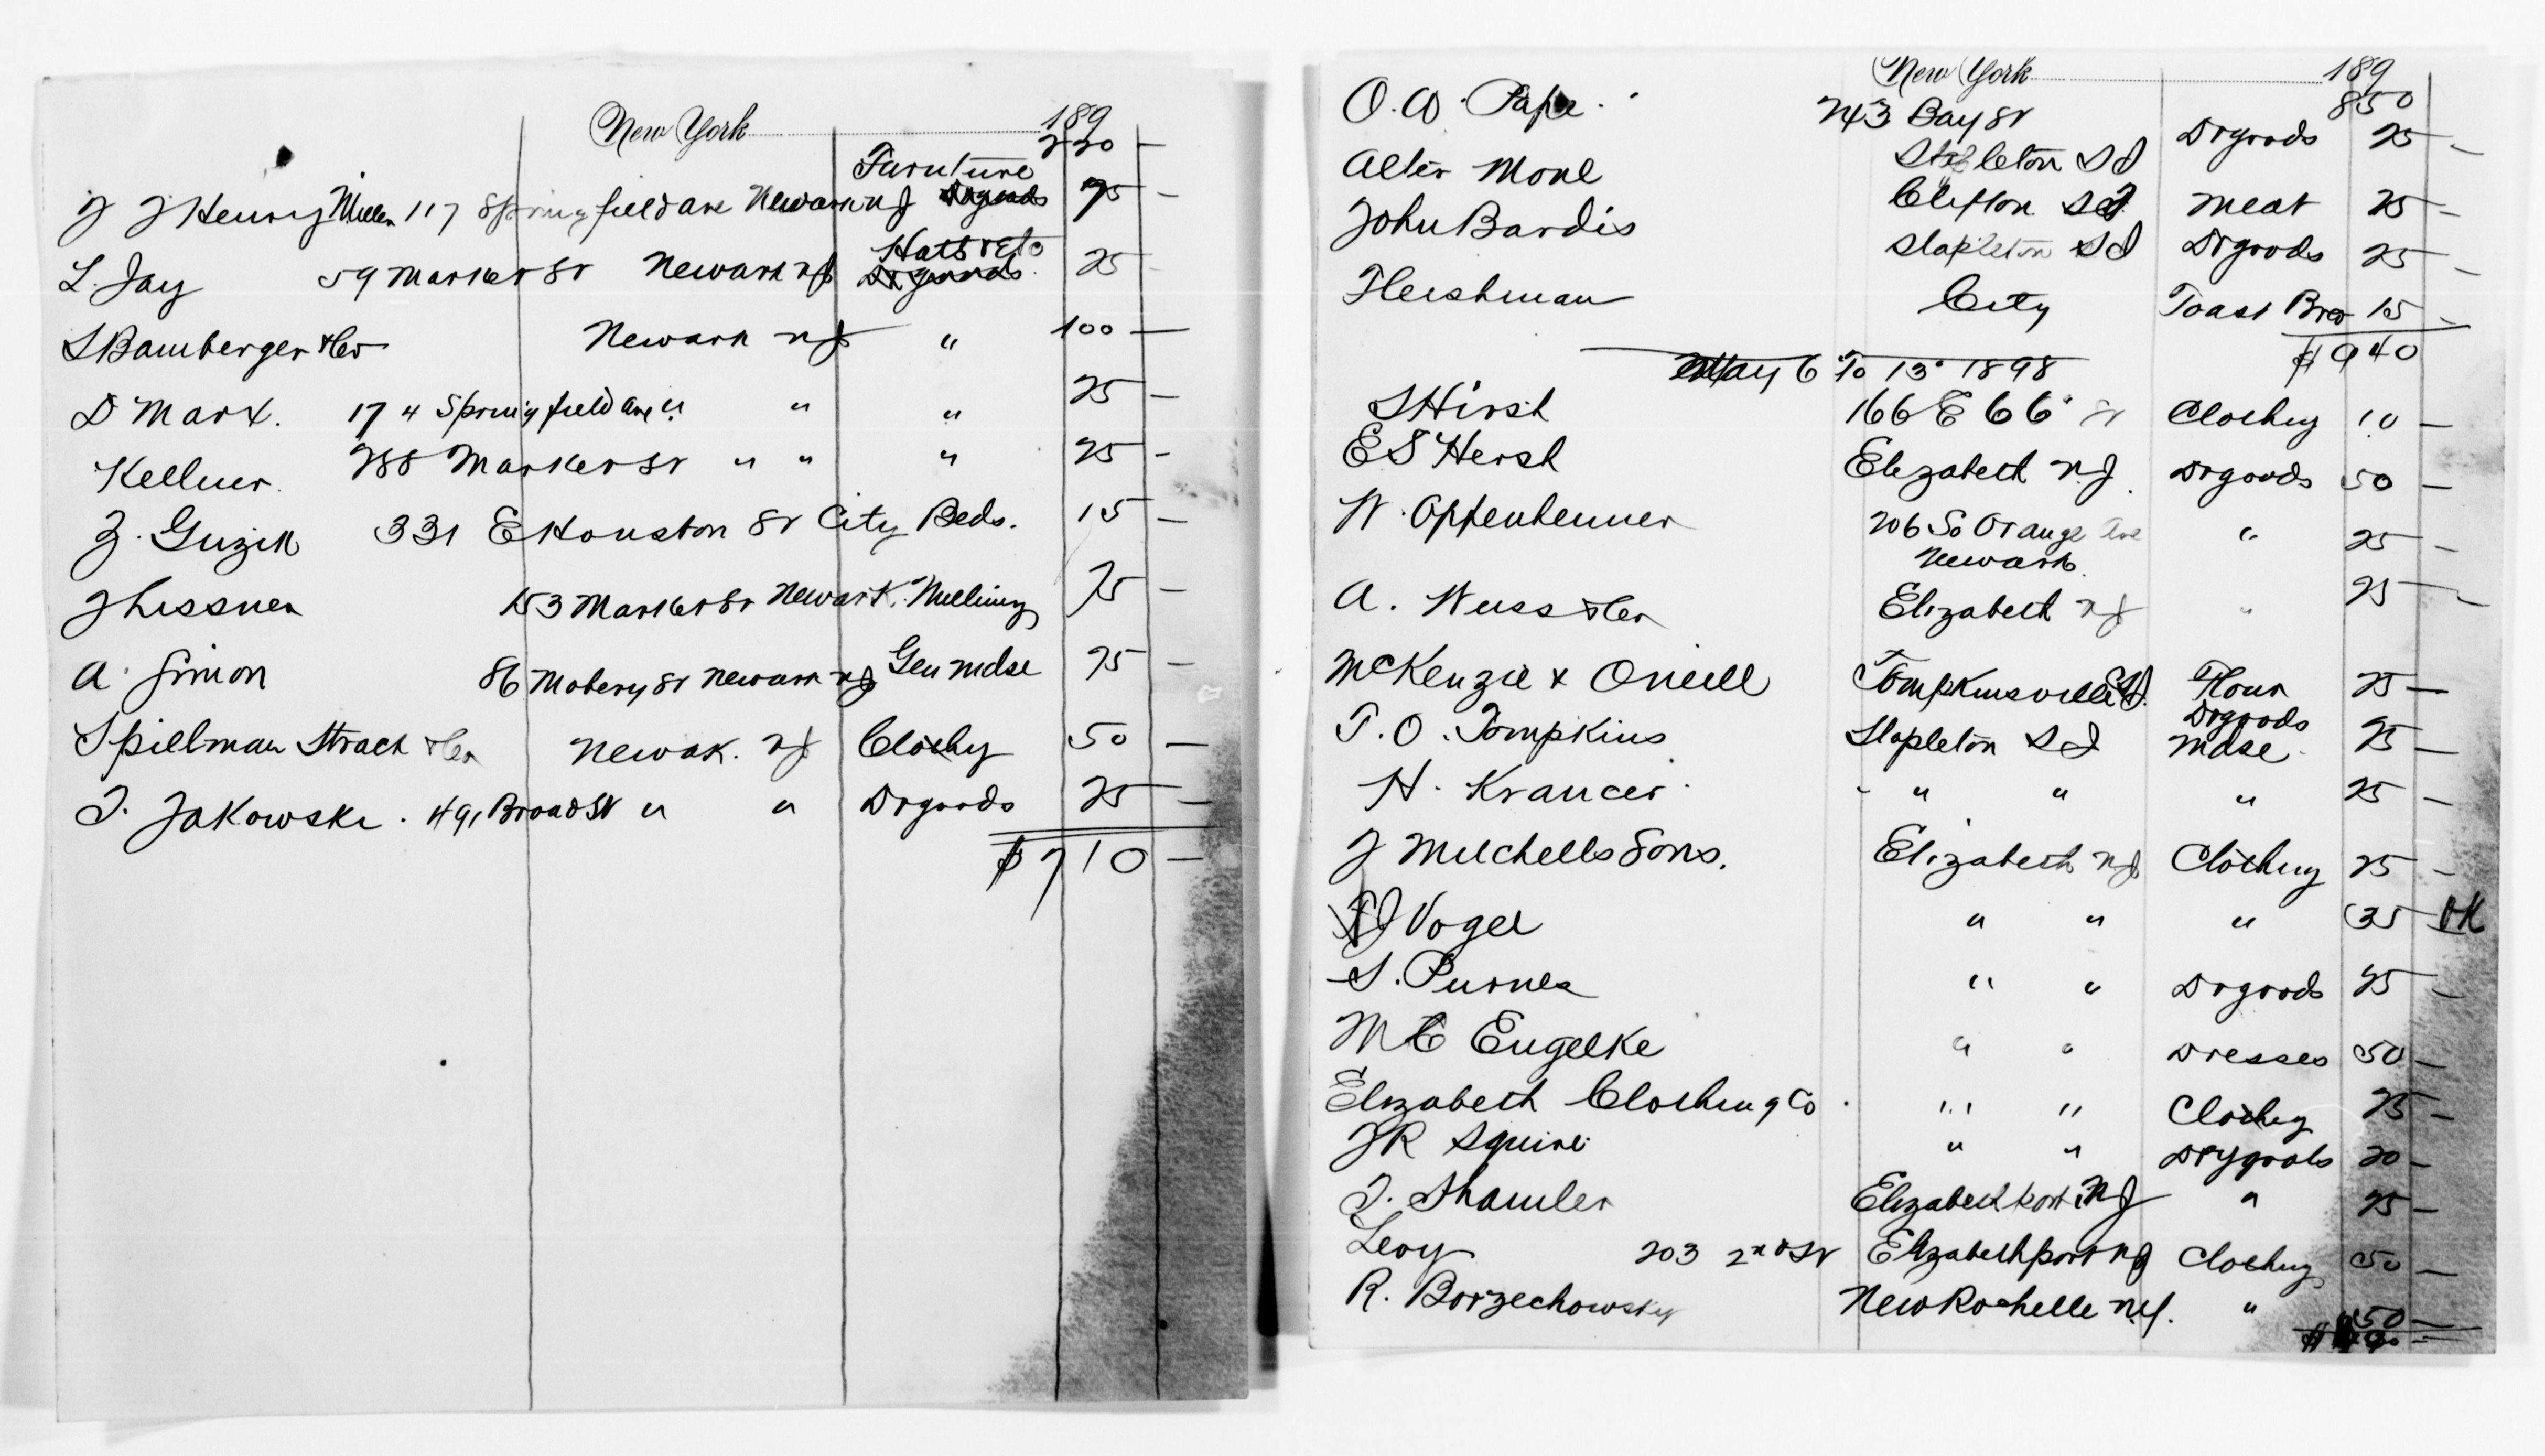 New York 189
220 —
Furniture
J J Henry Muller 117 Springfield ave Newark nj 75 —
Hats & Etc
L. Jay 59 Market St Newark nj Drgoods 25 —
L Bamberger & Co Newark nj " 100 —
D Marx. 174 Springfield ave " " " 25 —
Kellner. 288 Market St " " " 25 —
Z. Guzik 331 E Houston St City Beds. 15 —
J Lissner 153 Market St Newark. Milliny 75 —
A. Simon 86 Mobery St Newark nj Gen mdse 75 —
Spillman Strach & Co Newak. nj Clothg 50 —
I. Jakowski. 491 Broad St " " Drgoods 25 —
$710 —
New York 189
850
O. W. Pape. 743 Bay St Drgoods 25 —
Stapleton S I
Alter Monl Clifton S I meat 25 —
John Bardis Stapleton S I Drgoods 25 —
Fleishman City Toast Bred 15 —
$940
May 6 To 13" 1898
S Hirsh 166 E 66" St Clothg 10 —
E S Hersh Elizabeth N.J. Drgoods 50 —
W. Oppenheimer 206 So Orange ave " 25 —
Newark.
A. Weiss & Co Elizabeth nj " 25 —
McKenzie & Oneill Tompkinsville S.I. Flour 25 —
Drgoods
T. O. Tompkins Stapleton S I mdse. 25 —
H. Krancer. " " " 25 —
J Mitchells Sons. Elizabeth nj Clothng 25 —
Vogel " " " 35 OK
S. Purnea " " Drgoods 25 —
M E Engelke " " Dresses 50 —
Elizabeth Clothing Co. " " Clothg 25 —
J R Squire " " Drygoods 20 —
I. Shamler Elizabethport N J " 25 —
Levy 203 2nd St Elizabethport nj Clothng 50 —
R. Borzechowsky New Rochelle n.y. " 50 —